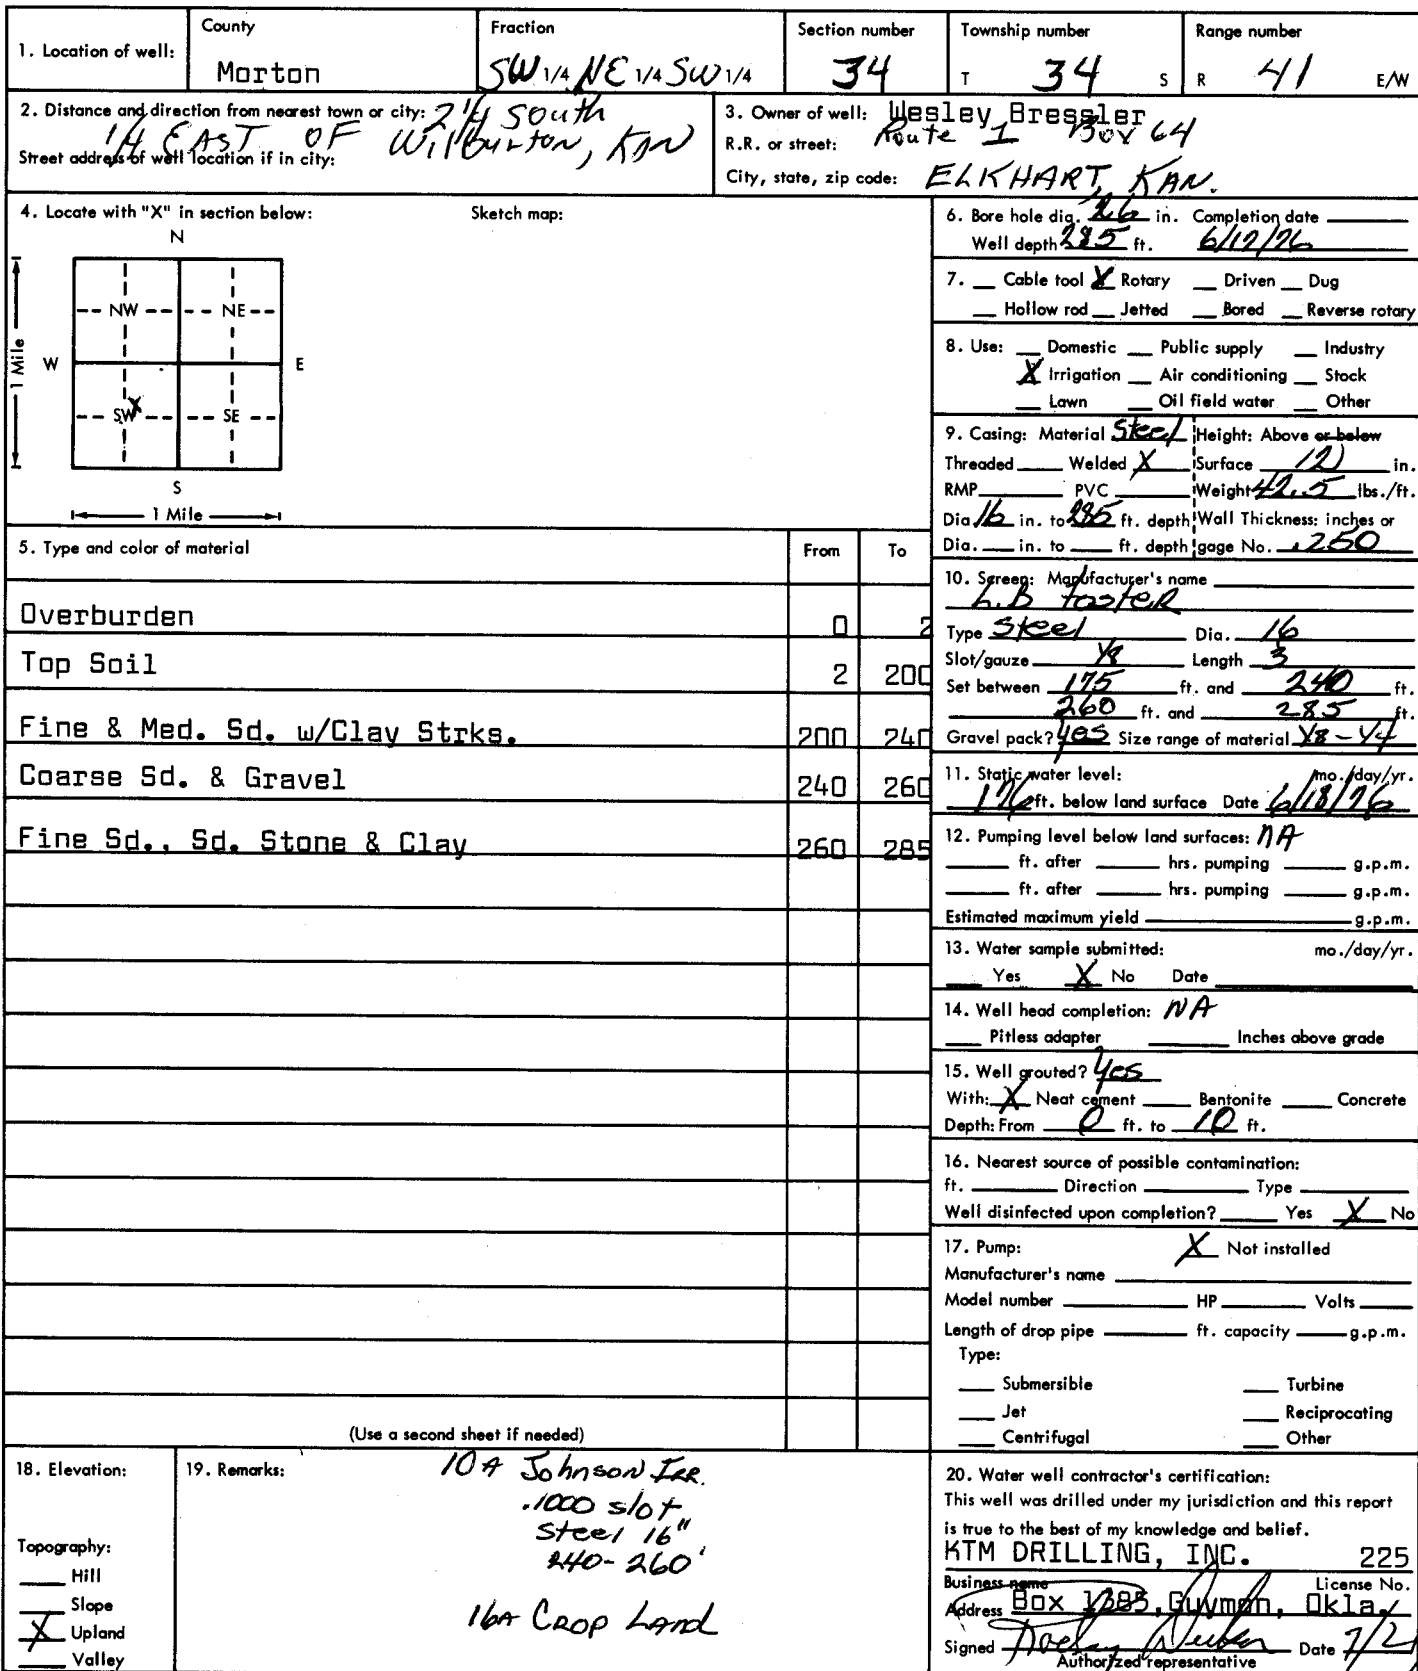 1. Location of well:
County
Morton
Fraction
SW 1/4 NE 1/4 SW 1/4
Section number
34
Township number
T 34 S
Range number
R 41 E/W
2. Distance and direction from nearest town or city: 2 1/4 South
1/4 EAST OF Wilburton, KAN
Street address of well location if in city:
3. Owner of well: Wesley Bressler
R.R. or street: Route 1 Box 64
City, state, zip code: ELKHART, KAN.
4. Locate with "X" in section below: Sketch map:
N
NW NE
W E
1 Mile
SW X SE
S
1 Mile
5. Type and color of material From To
Overburden 0 2
Top Soil 2 200
Fine & Med. Sd. w/Clay Strks. 200 240
Coarse Sd. & Gravel 240 260
Fine Sd., Sd. Stone & Clay 260 285
(Use a second sheet if needed)
6. Bore hole dia. 26 in. Completion date
Well depth 285 ft. 6/17/76
7. Cable tool X Rotary Driven Dug
Hollow rod Jetted Bored Reverse rotary
8. Use: Domestic Public supply Industry
X Irrigation Air conditioning Stock
Lawn Oil field water Other
9. Casing: Material Steel Height: Above or below
Threaded Welded X Surface 12 in.
RMP PVC Weight 42.5 lbs./ft.
Dia 16 in. to 285 ft. depth Wall Thickness: inches or
Dia. in. to ft. depth gage No. .250
10. Screen: Manufacturer's name
L.B Foster
Type Steel Dia. 16
Slot/gauze 1/8 Length 3
Set between 175 ft. and 240 ft.
260 ft. and 285 ft.
Gravel pack? Yes Size range of material 1/8-1/4
11. Static water level: mo./day/yr.
176 ft. below land surface Date 6/18/76
12. Pumping level below land surfaces: NA
ft. after hrs. pumping g.p.m.
ft. after hrs. pumping g.p.m.
Estimated maximum yield g.p.m.
13. Water sample submitted: mo./day/yr.
Yes X No Date
14. Well head completion: NA
Pitless adapter Inches above grade
15. Well grouted? Yes
With: X Neat cement Bentonite Concrete
Depth: From 0 ft. to 10 ft.
16. Nearest source of possible contamination:
ft. Direction Type
Well disinfected upon completion? Yes X No
17. Pump: X Not installed
Manufacturer's name
Model number HP Volts
Length of drop pipe ft. capacity g.p.m.
Type:
Submersible Turbine
Jet Reciprocating
Centrifugal Other
18. Elevation:
Topography:
Hill
Slope
X Upland
Valley
19. Remarks: 10A Johnson IRR.
.1000 slot
Steel 16"
240-260'
16A CROP LAND
20. Water well contractor's certification:
This well was drilled under my jurisdiction and this report
is true to the best of my knowledge and belief.
KTM DRILLING, INC. 225
Business name License No.
Address Box 1385, Guymon, Okla.
Signed Date 7/2
Authorized representative